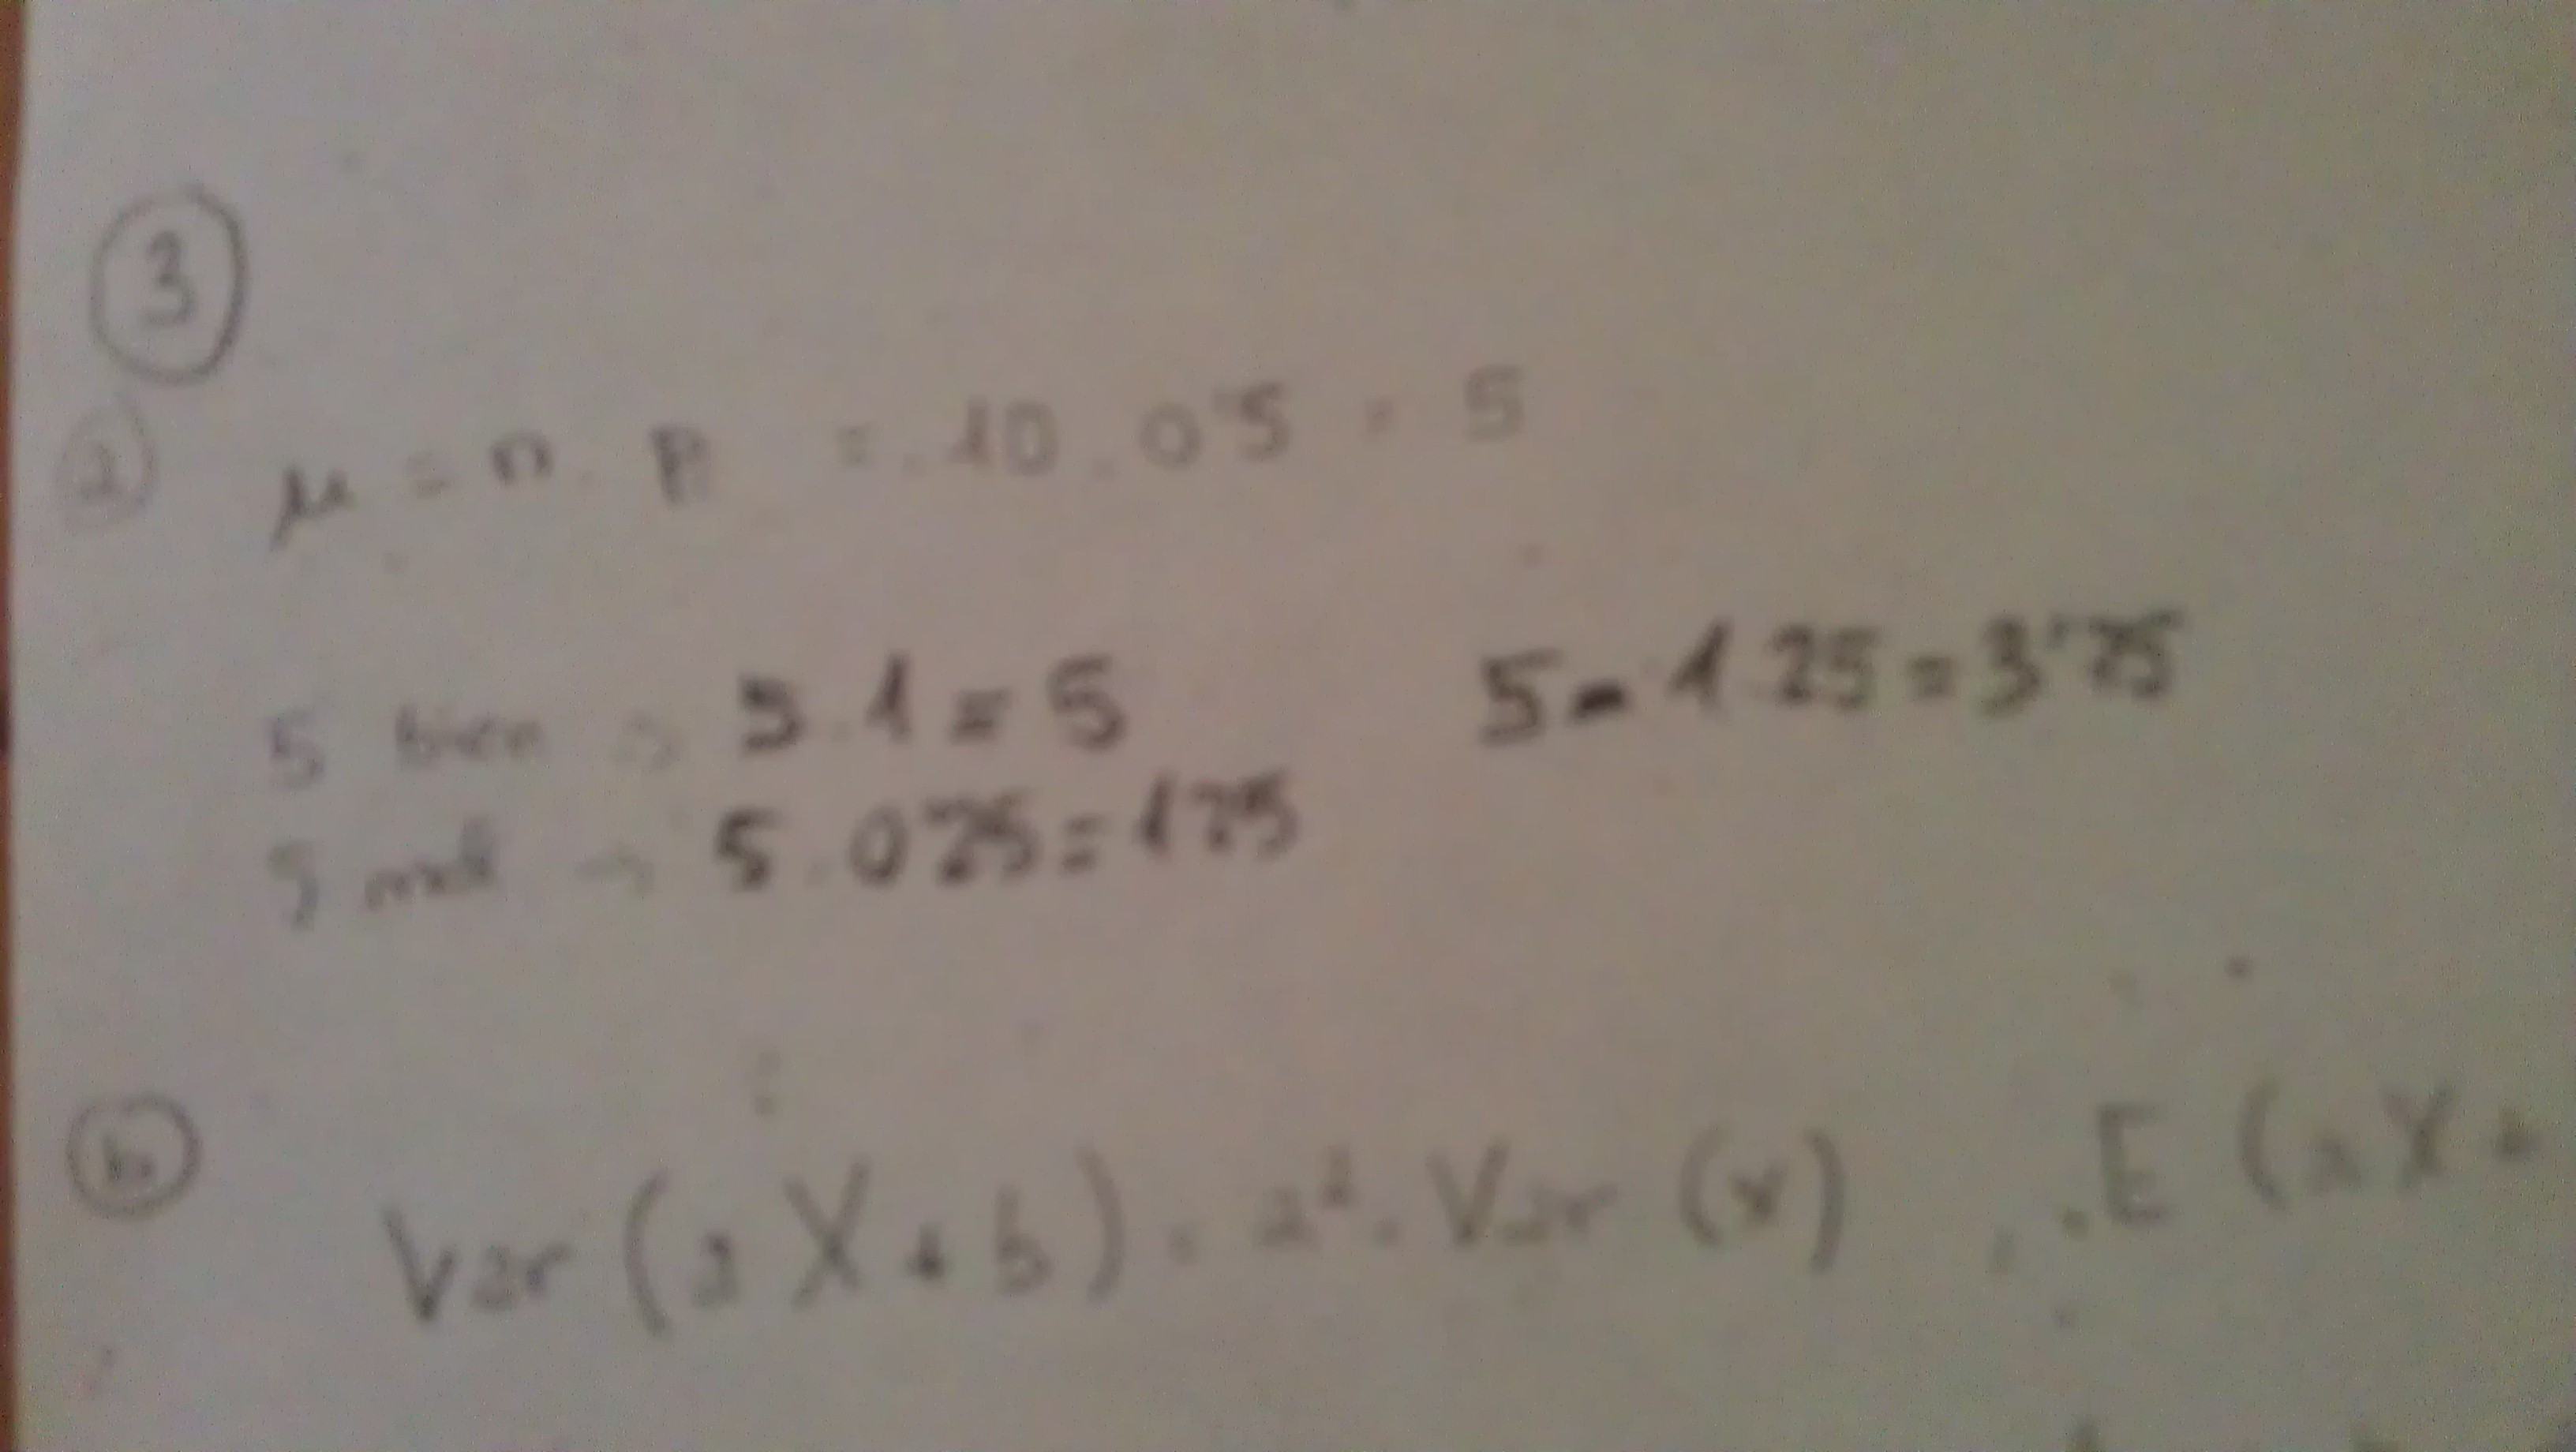 3
a μ = n . p = 10 . 0'5 = 5
5 bien -> 5 . 1 = 5 5 - 1'25 = 3'75
5 mal -> 5 . 0'25 = 1'25
b Var (aX + b) = a² . Var (x) E (aX +